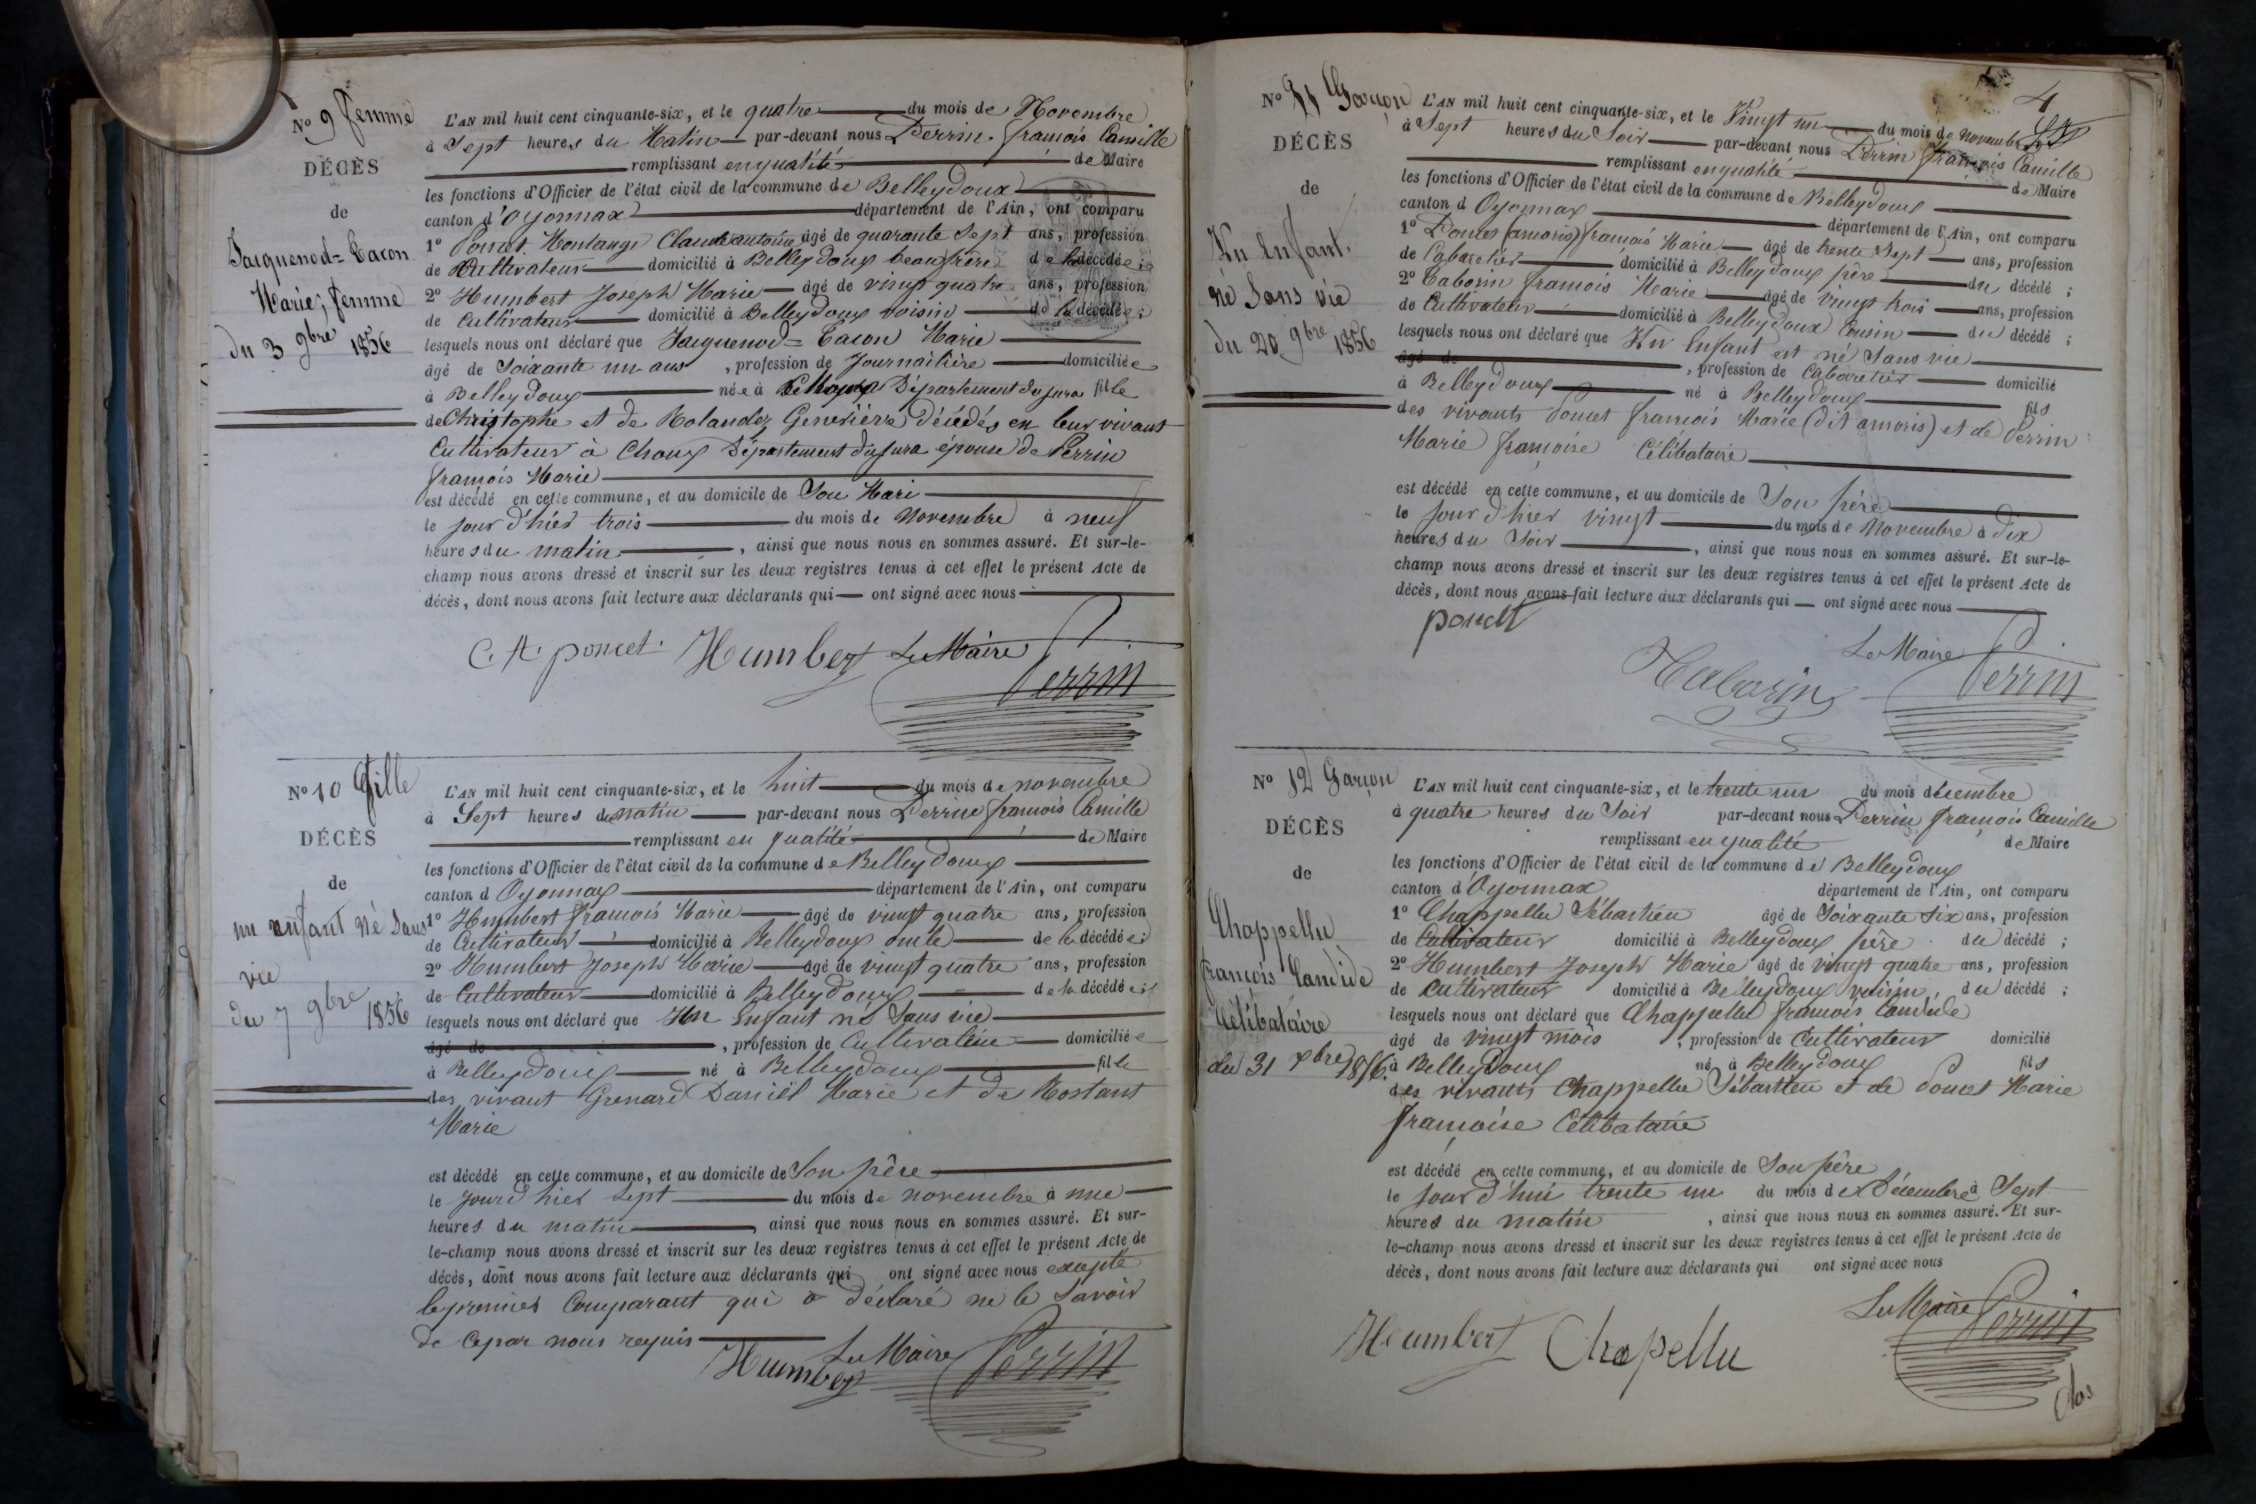 No 9 femme
DÉCÈS
de
Jacquenod=Tacon
Marie, femme
du 3 9bre 1856
L'AN mil huit cent cinquante-six, et le quatre du mois de Novembre
à Sept heures du Matin par-devant nous Perrin françois Camille
remplissant en qualité de Maire
les fonctions d'Officier de l'état civil de la commune de Belleydoux
canton d'Oyonnax département de l'Ain, ont comparu
1o Poncet Montange Claude antoine âgé de quarante Sept ans, profession
de Cultivateur domicilié à Belleydoux beaufrère de la décédée;
2o Humbert Joseph Marie âgé de vingt quatre ans, profession
de Cultivateur domicilié à Belleydoux voisin de la décédée;
lesquels nous ont déclaré que Jacquenod=Tacon Marie
âgé de Soixante un ans, profession de Journalière domiciliée
à Belleydoux née à Département du jura fille
de Christophe et de Rolandez Geneviève Décédés en leur vivant
Cultivateur à Choux Département du jura épouse de Perrin
françois Marie
est décédé en cette commune, et au domicile de Son Mari
le jour d'hier trois du mois de Novembre à neuf
heures du matin, ainsi que nous nous en sommes assuré. Et sur-le-
champ nous avons dressé et inscrit sur les deux registres tenus à cet effet le présent Acte de
décès, dont nous avons fait lecture aux déclarants qui ont signé avec nous
C. A. poncet Humbert Le Maire Perrin
No 10 fille
DÉCÈS
de
un enfant né Sans
vie
du 7 9bre 1856
L'AN mil huit cent cinquante-six, et le huit du mois de novembre
à Sept heures du matin par-devant nous Perrin françois Camille
remplissant en qualité de Maire
les fonctions d'Officier de l'état civil de la commune de Belleydoux
canton d Oyonnax département de l'Ain, ont comparu
1o Humbert françois Marie âgé de vingt quatre ans, profession
de Cultivateur domicilié à Belleydoux oncle de la décédée;
2o Humbert Joseph Marie âgé de vingt quatre ans, profession
de Cultivateur domicilié à Belleydoux de la décédée;
lesquels nous ont déclaré que Un Enfant né Sans vie
âgé de , profession de Cultivateur domiciliée
à Belleydoux né à Belleydoux fille
des vivant Grenard Daniel Marie et de Rostant
Marie
est décédé en cette commune, et au domicile de Son père
le jour d'hier sept du mois de novembre à une
heures du matin, ainsi que nous nous en sommes assuré. Et sur-
le-champ nous avons dressé et inscrit sur les deux registres tenus à cet effet le présent Acte de
décès, dont nous avons fait lecture aux déclarants qui ont signé avec nous excepté
le premier Comparant qui a déclaré ne le Savoir
de ce par nous requis
Humbert Le Maire Perrin
4
No 11 Garçon
DÉCÈS
de
Un Enfant
né Sans vie
du 20 9bre 1856
L'AN mil huit cent cinquante-six, et le Vingt un du mois de novembre
à Sept heures du Soir par-devant nous Perrin françois Camille
remplissant en qualité de Maire
les fonctions d'Officier de l'état civil de la commune de Belleydoux
canton d Oyonnax département de l'Ain, ont comparu
1o Poncet (amoris) françois Marie âgé de trente Sept ans, profession
de Cabaretier domicilié à Belleydoux père du décédé;
2o Taborin françois Marie âgé de vingt trois ans, profession
de Cultivateur domicilié à Belleydoux Cousin du décédé;
lesquels nous ont déclaré que Un Enfant est né Sans vie
âgé de , profession de Cabaretier domicilié
à Belleydoux né à Belleydoux fils
des vivants Poncet françois Marie (dit amoris) et de Perrin
Marie françoise Célibataire
est décédé en cette commune, et au domicile de Son père
le jour d'hier vingt du mois de Novembre à dix
heures du Soir, ainsi que nous nous en sommes assuré. Et sur-le-
champ nous avons dressé et inscrit sur les deux registres tenus à cet effet le présent Acte de
décès, dont nous avons fait lecture aux déclarants qui ont signé avec nous
poncet
Taborin Le Maire Perrin
No 12 Garçon
DÉCÈS
de
Chappellu
françois Candide
Célibataire
du 31 xbre 1856.
L'AN mil huit cent cinquante-six, et le trente un du mois décembre
à quatre heures du Soir par-devant nous Perrin françois Camille
remplissant en qualité de Maire
les fonctions d'Officier de l'état civil de la commune de Belleydoux
canton d'Oyonnax département de l'Ain, ont comparu
1o Chappellu Sébastien âgé de Soixante six ans, profession
de Cultivateur domicilié à Belleydoux père du décédé;
2o Humbert Joseph Marie âgé de vingt quatre ans, profession
de Cultivateur domicilié à Belleydoux voisin, du décédé;
lesquels nous ont déclaré que Chappellu françois Candide
âgé de vingt mois, profession de Cultivateur domicilié
à Belleydoux né à Belleydoux fils
des vivants Chappellu Sébastien et de Poncet Marie
françoise Célibataire
est décédé en cette commune, et au domicile de Son père
le jour d'hui trente un du mois de Décembre à Sept
heures du matin, ainsi que nous nous en sommes assuré. Et sur-
le-champ nous avons dressé et inscrit sur les deux registres tenus à cet effet le présent Acte de
décès, dont nous avons fait lecture aux déclarants qui ont signé avec nous
Humbert Chapellu Le Maire Perrin
Clos